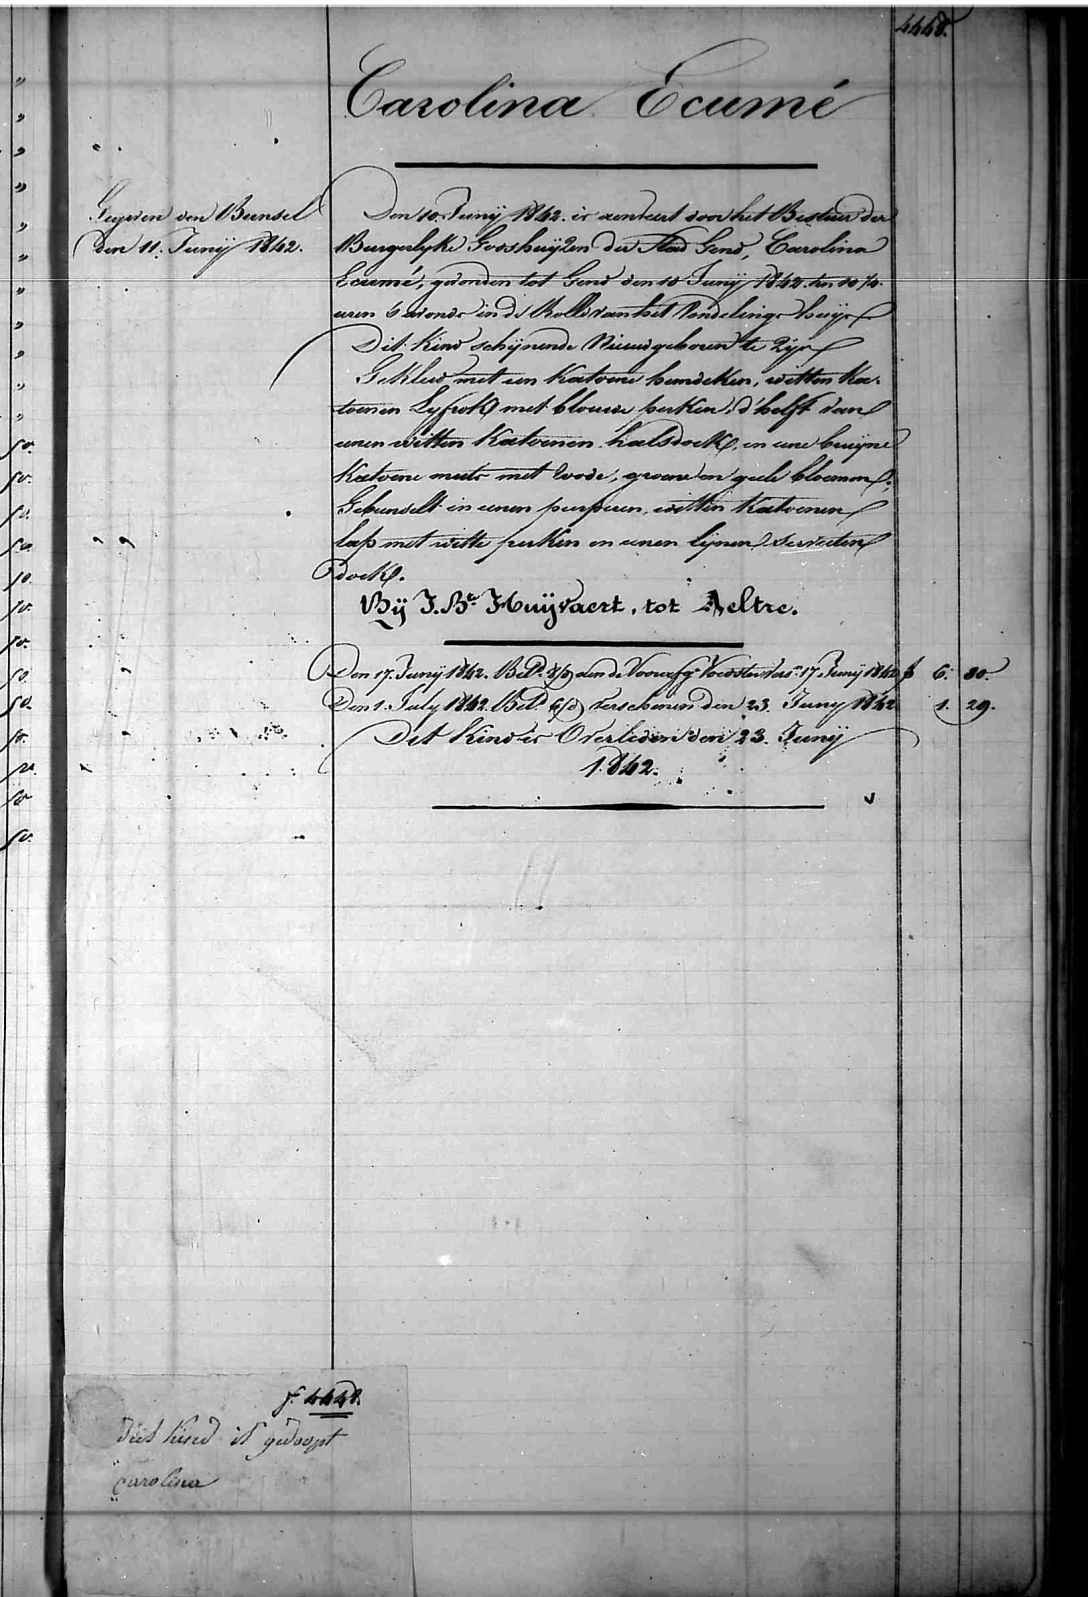 4448.
Carolina Ecumé
Gegeven den Bunsel
den 11. Junij 1842.
Den 10. Junij 1842. is aenveert door het Bestuer der
Burgerlyke Godshuijzen der Stad Gend, Carolina
Ecumé, gevonden tot Gend den 10 Junij 1842. ten 10 ¼.
uren 's avonds in de Rolle van het Vondelings huijs.
Dit Kind schijnende Nieuwgeboren te zijn
Gekleed met een Katoene hemdeken, witten Ka-
toenen Lyfrok met blouwe perken, d'helft van
eenen witten Katoenen halsdoek, en eene bruijne
Katoene muts met roode, groene en geele bloemen;
Gebunselt in eenen purperen, witten Katoenen
lap met witte perken en eenen lijnen servieten
doek.
Bij J. Bte Huijvaert, tot Aeltre.
Den 17. Junij 1842. Betd aen de Voorzg Voedster 17. Junij 1842 f 6. 80.
Den 1. July 1842. Betd verschenen den 23. Juny 1842 1. 29.
Dit Kind is Overleden den 23. Junij
1842.
f. 4448.
Dit kind is gedoopt
Carolina
50.
50.
50.
50.
50.
50.
50.
50.
50.
50.
50.
50
50.